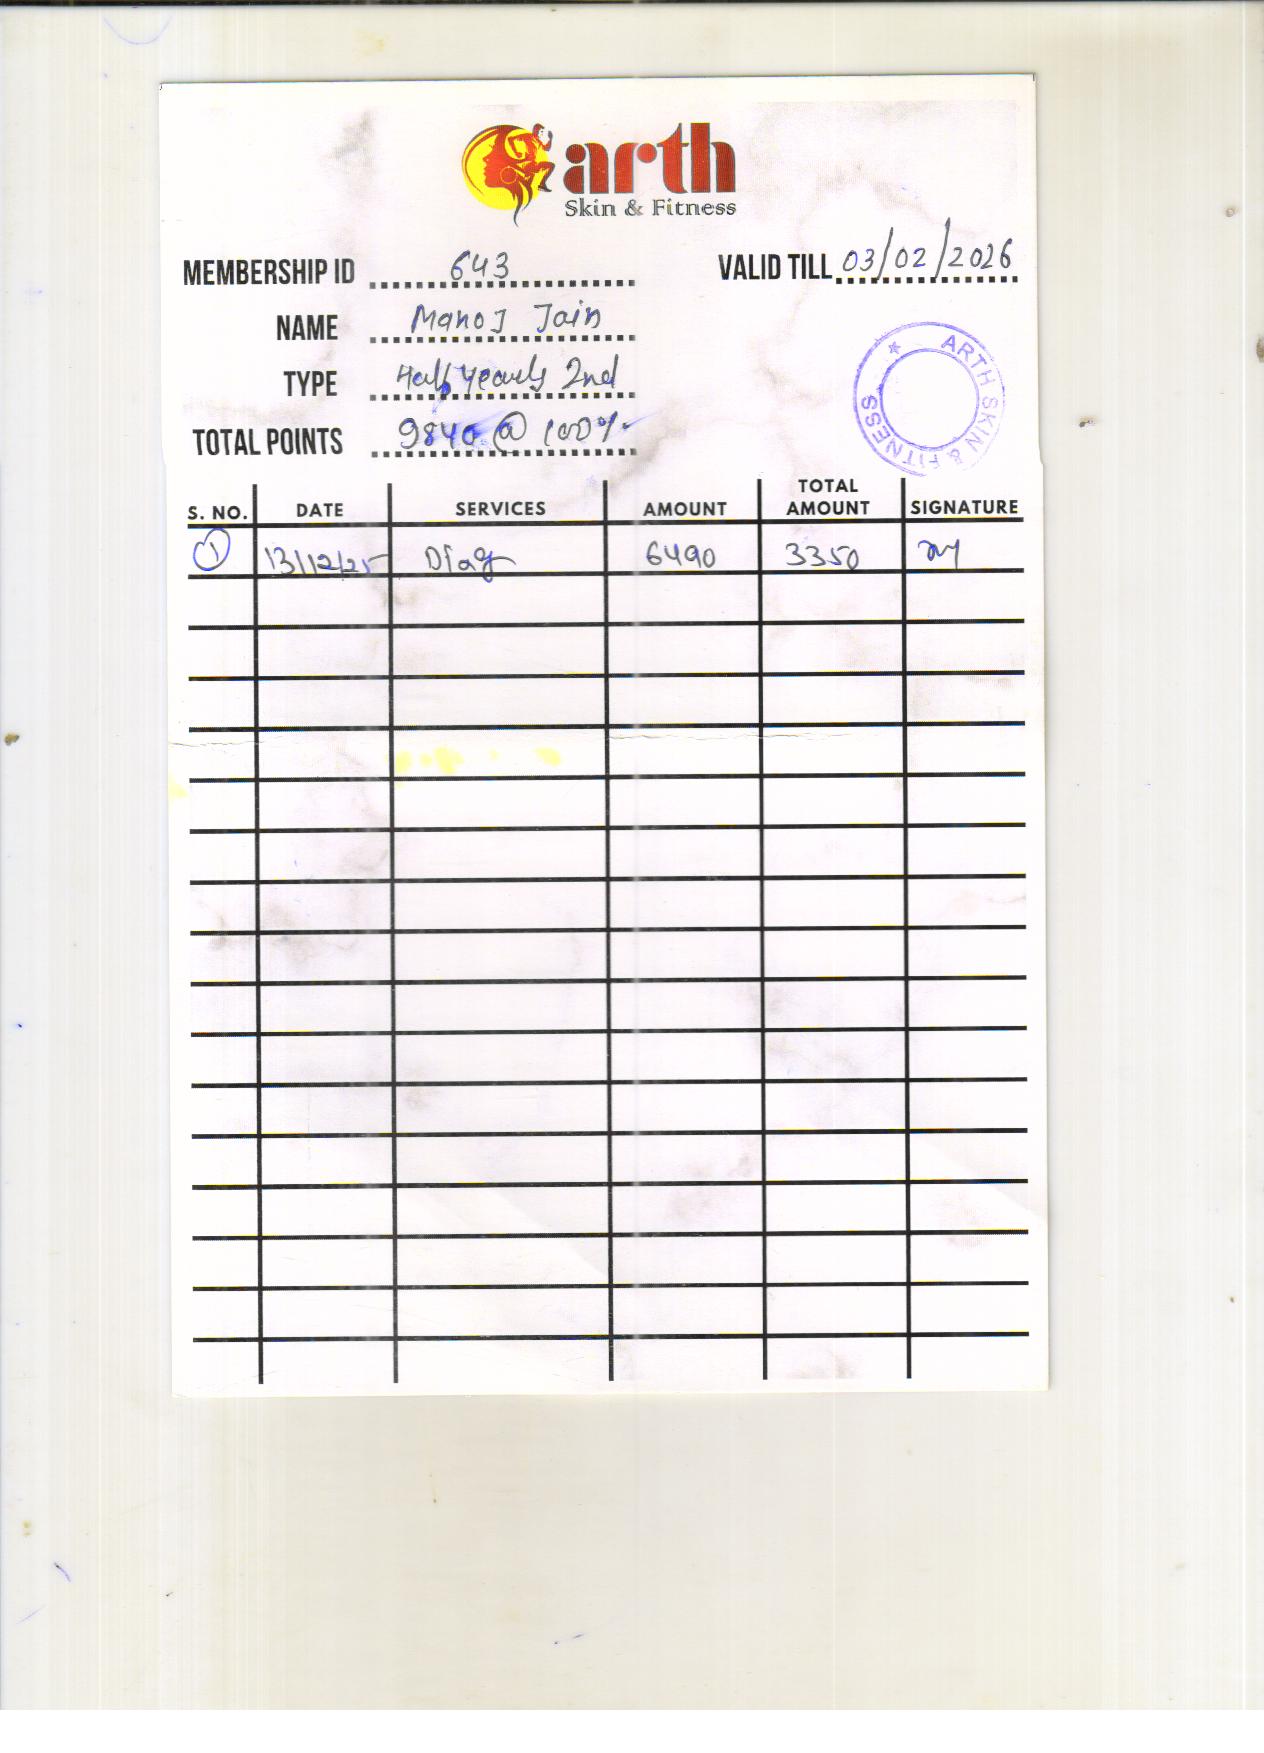 arth
Skin & Fitness
MEMBERSHIP ID 643 VALID TILL 03/02/2026
NAME Manoj Jain
TYPE Half yearly 2nd
TOTAL POINTS 9840 @ 100%
ARTH SKIN & FITNESS
S. NO. DATE SERVICES AMOUNT TOTAL AMOUNT SIGNATURE
1 13/12/25 Diag 6490 3350